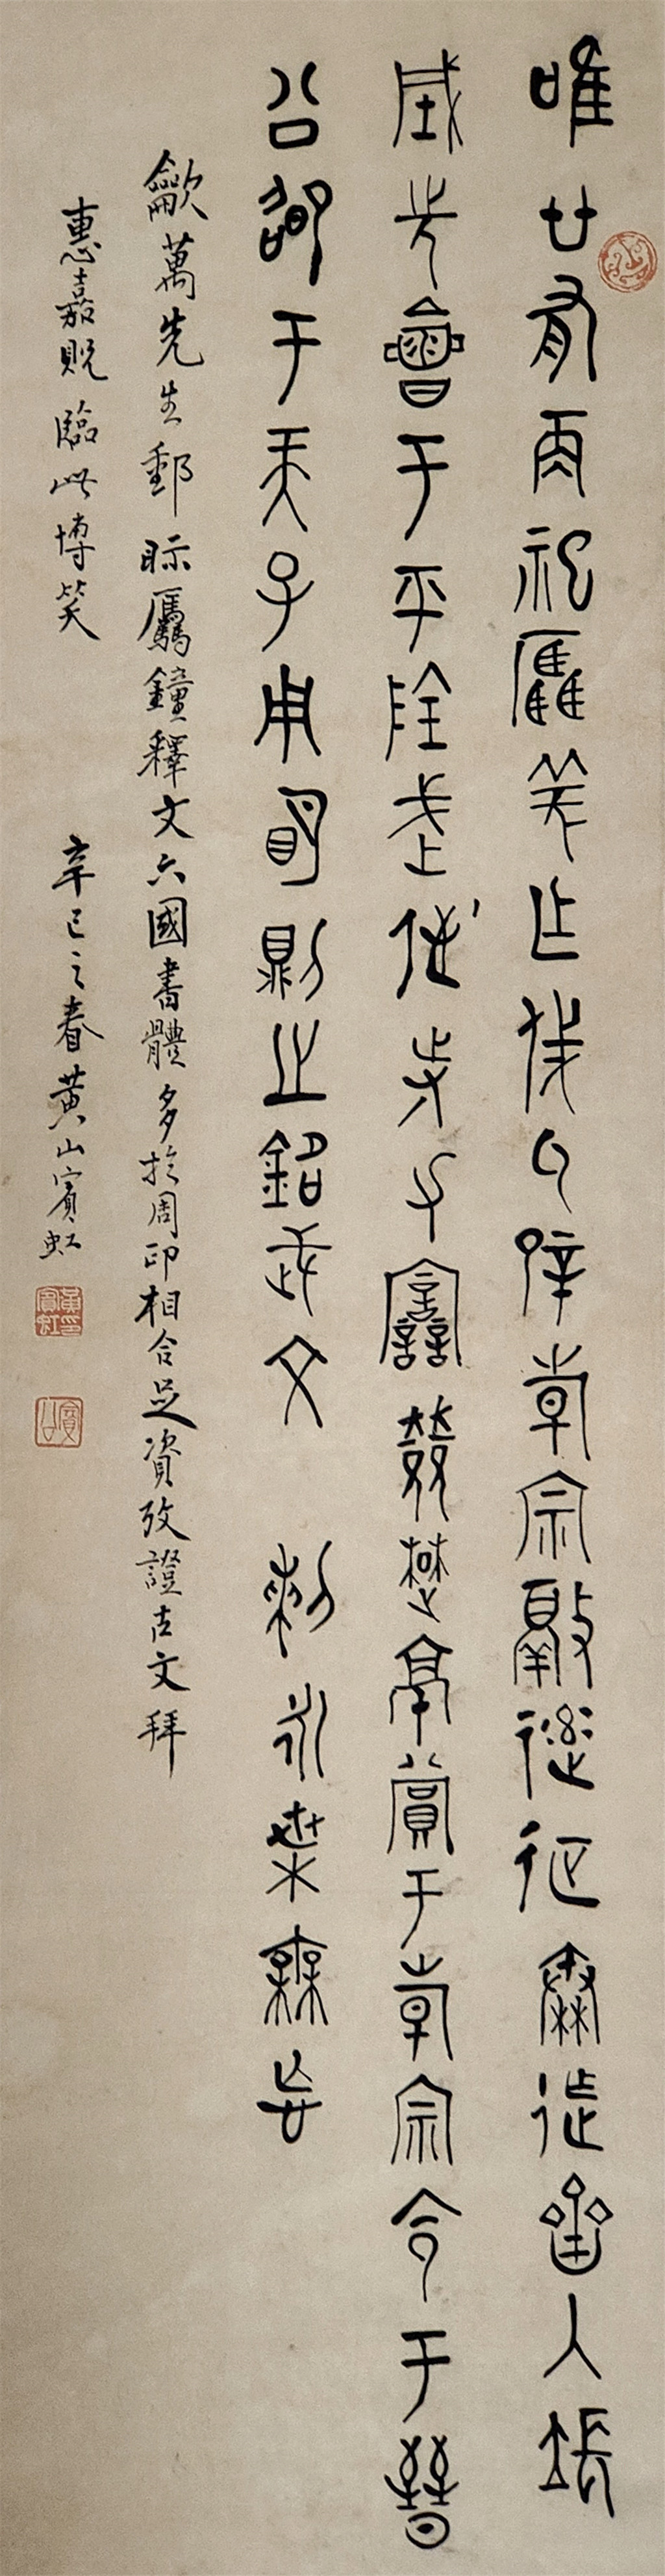 唯廿又再祀驫羌乍戎厥辟韓宗敲逨征秦迮齊入張
城先會于平陰武侄寺力襲敚楚京賞于韓宗令于晉
公卲于天子用明則之銘武文 剌永枼毋忘
龡萬先生郵眎驫鐘釋文六國書體多於周印相合足資攷證古文拜
惠嘉貺臨此博笑 辛巳之春黃山賓虹
黃賓虹印
賓公